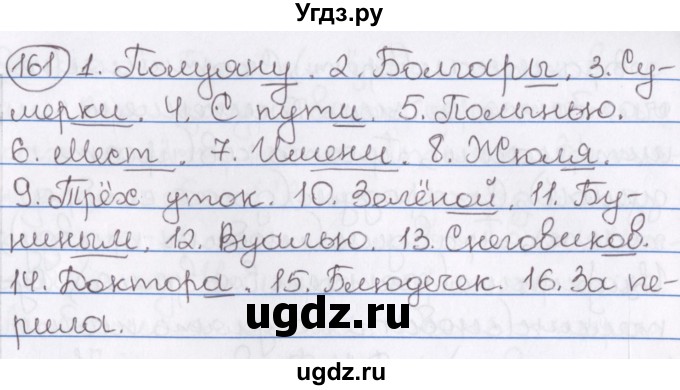 Угдз.ру
161 1. Полуяну 2. Болгары. 3. Су-
мерки. 4. С пути. 5. Полынью.
6. Мест. 7. Имени. 8. Жюля.
9. Трёх уток. 10. Зелёной, 11. Бу-
ниным. 12. Вуалью. 13. Снеговиков.
14. Доктора. 15. Блюдечек. 16. За пе-
рила.
ugdz.ru
ugdz.ru